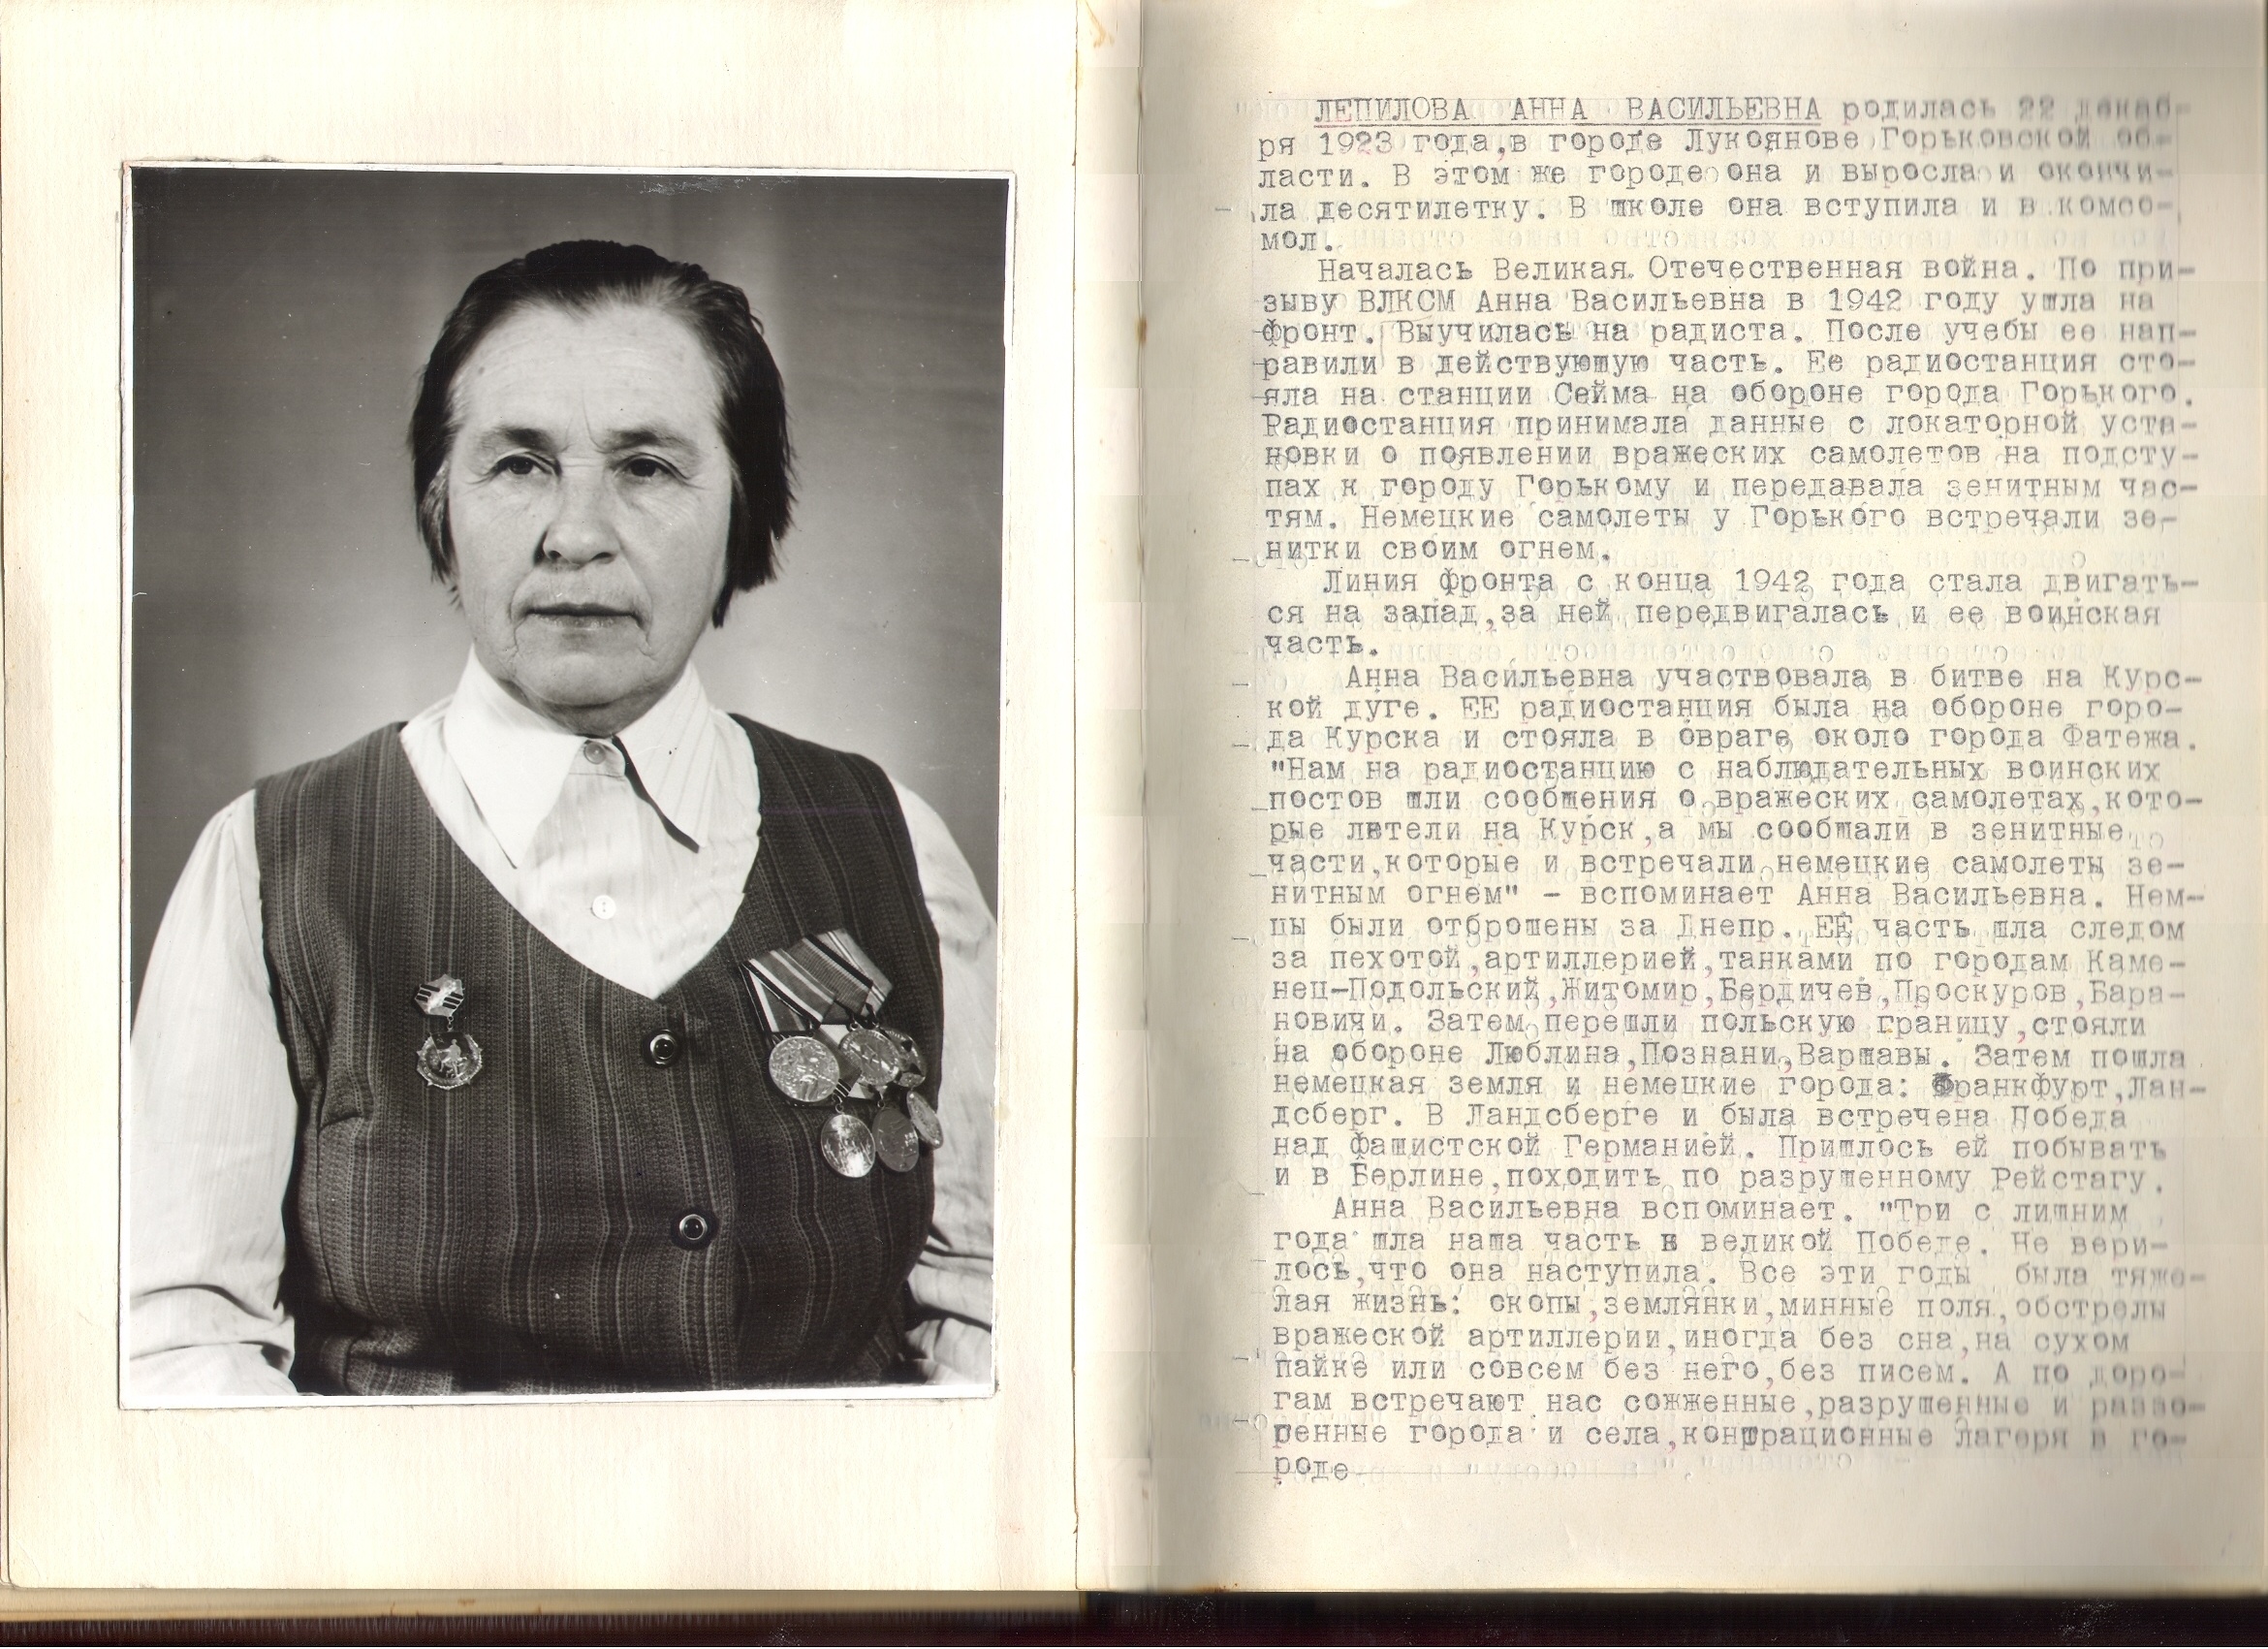 ЛЕПИЛОВА АННА ВАСИЛЬЕВНА родилась 22 декаб-
ря 1923 года,в городе Лукоянове Горьковской об-
ласти. В этом же городе она и выросла и окончи-
ла десятилетку. В школе она вступила и в комсо-
мол.
Началась Великая Отечественная война. По при-
зыву ВЛКСМ Анна Васильевна в 1942 году ушла на
фронт. Выучилась на радиста. После учебы ее нап-
равили в действующую часть. Ее радиостанция сто-
яла на станции Сейма на обороне города Горького.
Радиостанция принимала данные с локаторной уста-
новки о появлении вражеских самолетов на подсту-
пах к городу Горькому и передавала зенитным час-
тям. Немецкие самолеты у Горького встречали зе-
нитки своим огнем.
Линия фронта с конца 1942 года стала двигать-
ся на запад,за ней передвигалась и ее воинская
часть.
Анна Васильевна участвовала в битве на Курс-
кой дуге. ЕЕ радиостанция была на обороне горо-
да Курска и стояла в овраге около города Фатежа.
"Нам на радиостанцию с наблюдательных воинских
постов шли сообщения о вражеских самолетах,кото-
рые летели на Курск,а мы сообщали в зенитные
части,которые и встречали немецкие самолеты зе-
нитным огнем" - вспоминает Анна Васильевна. Нем-
цы были отброшены за Днепр. ЕЕ часть шла следом
за пехотой,артиллерией,танками по городам Каме-
нец-Подольский,Житомир,Бердичев,Проскуров,Бара-
новичи. Затем перешли польскую границу,стояли
на обороне Люблина,Познани,Варшавы. Затем пошла
немецкая земля и немецкие города: Франкфурт,Лан-
дсберг. В Ландсберге и была встречена Победа
над фашистской Германией. Пришлось ей побывать
и в Берлине,походить по разрушенному Рейстагу.
Анна Васильевна вспоминает. "Три с лишним
года шла наша часть к великой Победе. Не вери-
лось,что она наступила. Все эти годы была тяже-
лая жизнь: окопы,землянки,минные поля,обстрелы
вражеской артиллерии,иногда без сна,на сухом
пайке или совсем без него,без писем. А по доро-
гам встречают нас сожженные,разрушенные и разво-
ренные города и села,контрационные лагеря в го-
роде